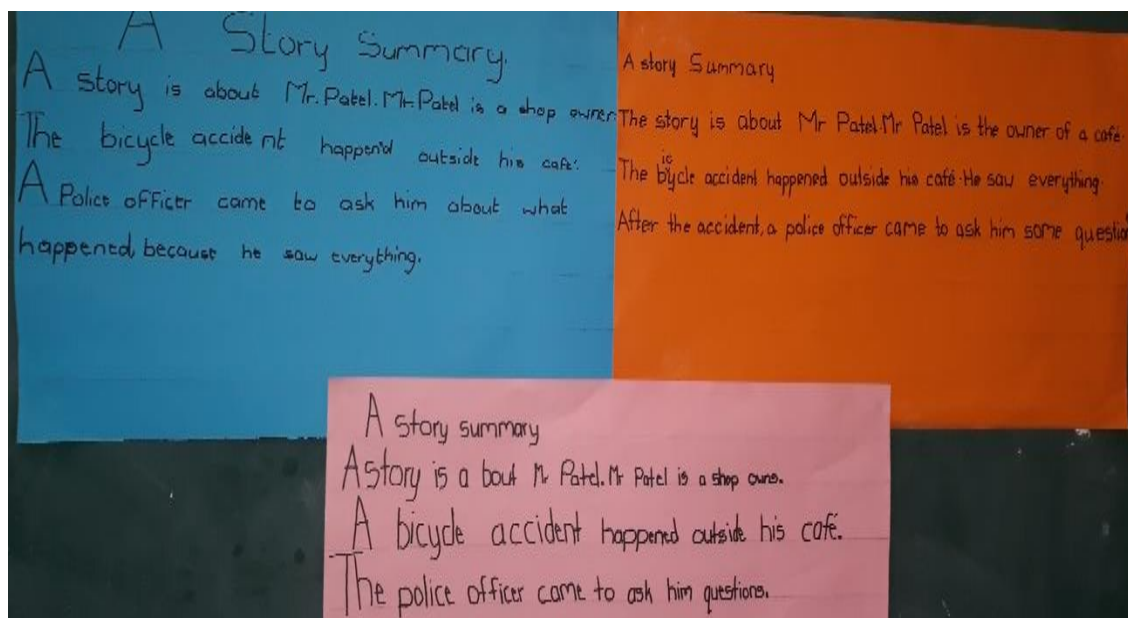 A Story Summary.
A story is about Mr. Patel. Mr Patel is a shop owner.
The bicycle accident happend outside his café.
A Police officer came to ask him about what
happened, because he saw everything.
A story Summary
The story is about Mr Patel. Mr Patel is the owner of a café.
The bicycle accident happened outside his café. He saw everything.
After the accident, a police officer came to ask him some questio
A story summary
A story is a bout Mr Patel. Mr Patel is a shop owns.
A bicycle accident happened outside his café.
The police officer came to ask him questions.